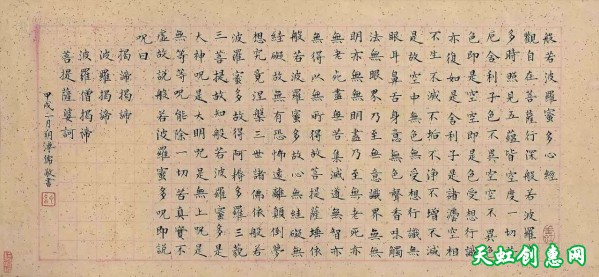 般若波羅蜜多心經
觀自在菩薩行深般若波羅蜜
多時照見五蘊皆空度一切苦
厄舍利子色不異空空不異色
色即是空空即是色受想行識
亦復如是舍利子是諸灋空相
不生不滅不垢不淨不增不減
是故空中無色無受想行識無
眼耳鼻舌身意無色聲香味觸
法無眼界乃至無意識界無無
明亦無無明盡乃至無老死亦
無老死盡無苦集滅道無智亦
無得以無所得故菩提薩埵依
般若波羅蜜多故心無絓礙無
絓礙故無有恐怖遠離顛倒夢
想究竟涅槃三世諸佛依般若
波羅蜜多故得阿耨多羅三藐
三菩提故知般若波羅蜜多是
大神呪是大明呪是無上呪是
無等等呪能除一切苦真實不
虛故說般若波羅蜜多呪即說
呪曰
揭諦揭諦
波羅揭諦
波羅僧揭諦
菩提薩婆訶
甲戌二月朔溥儒敬書
天虹创惠网